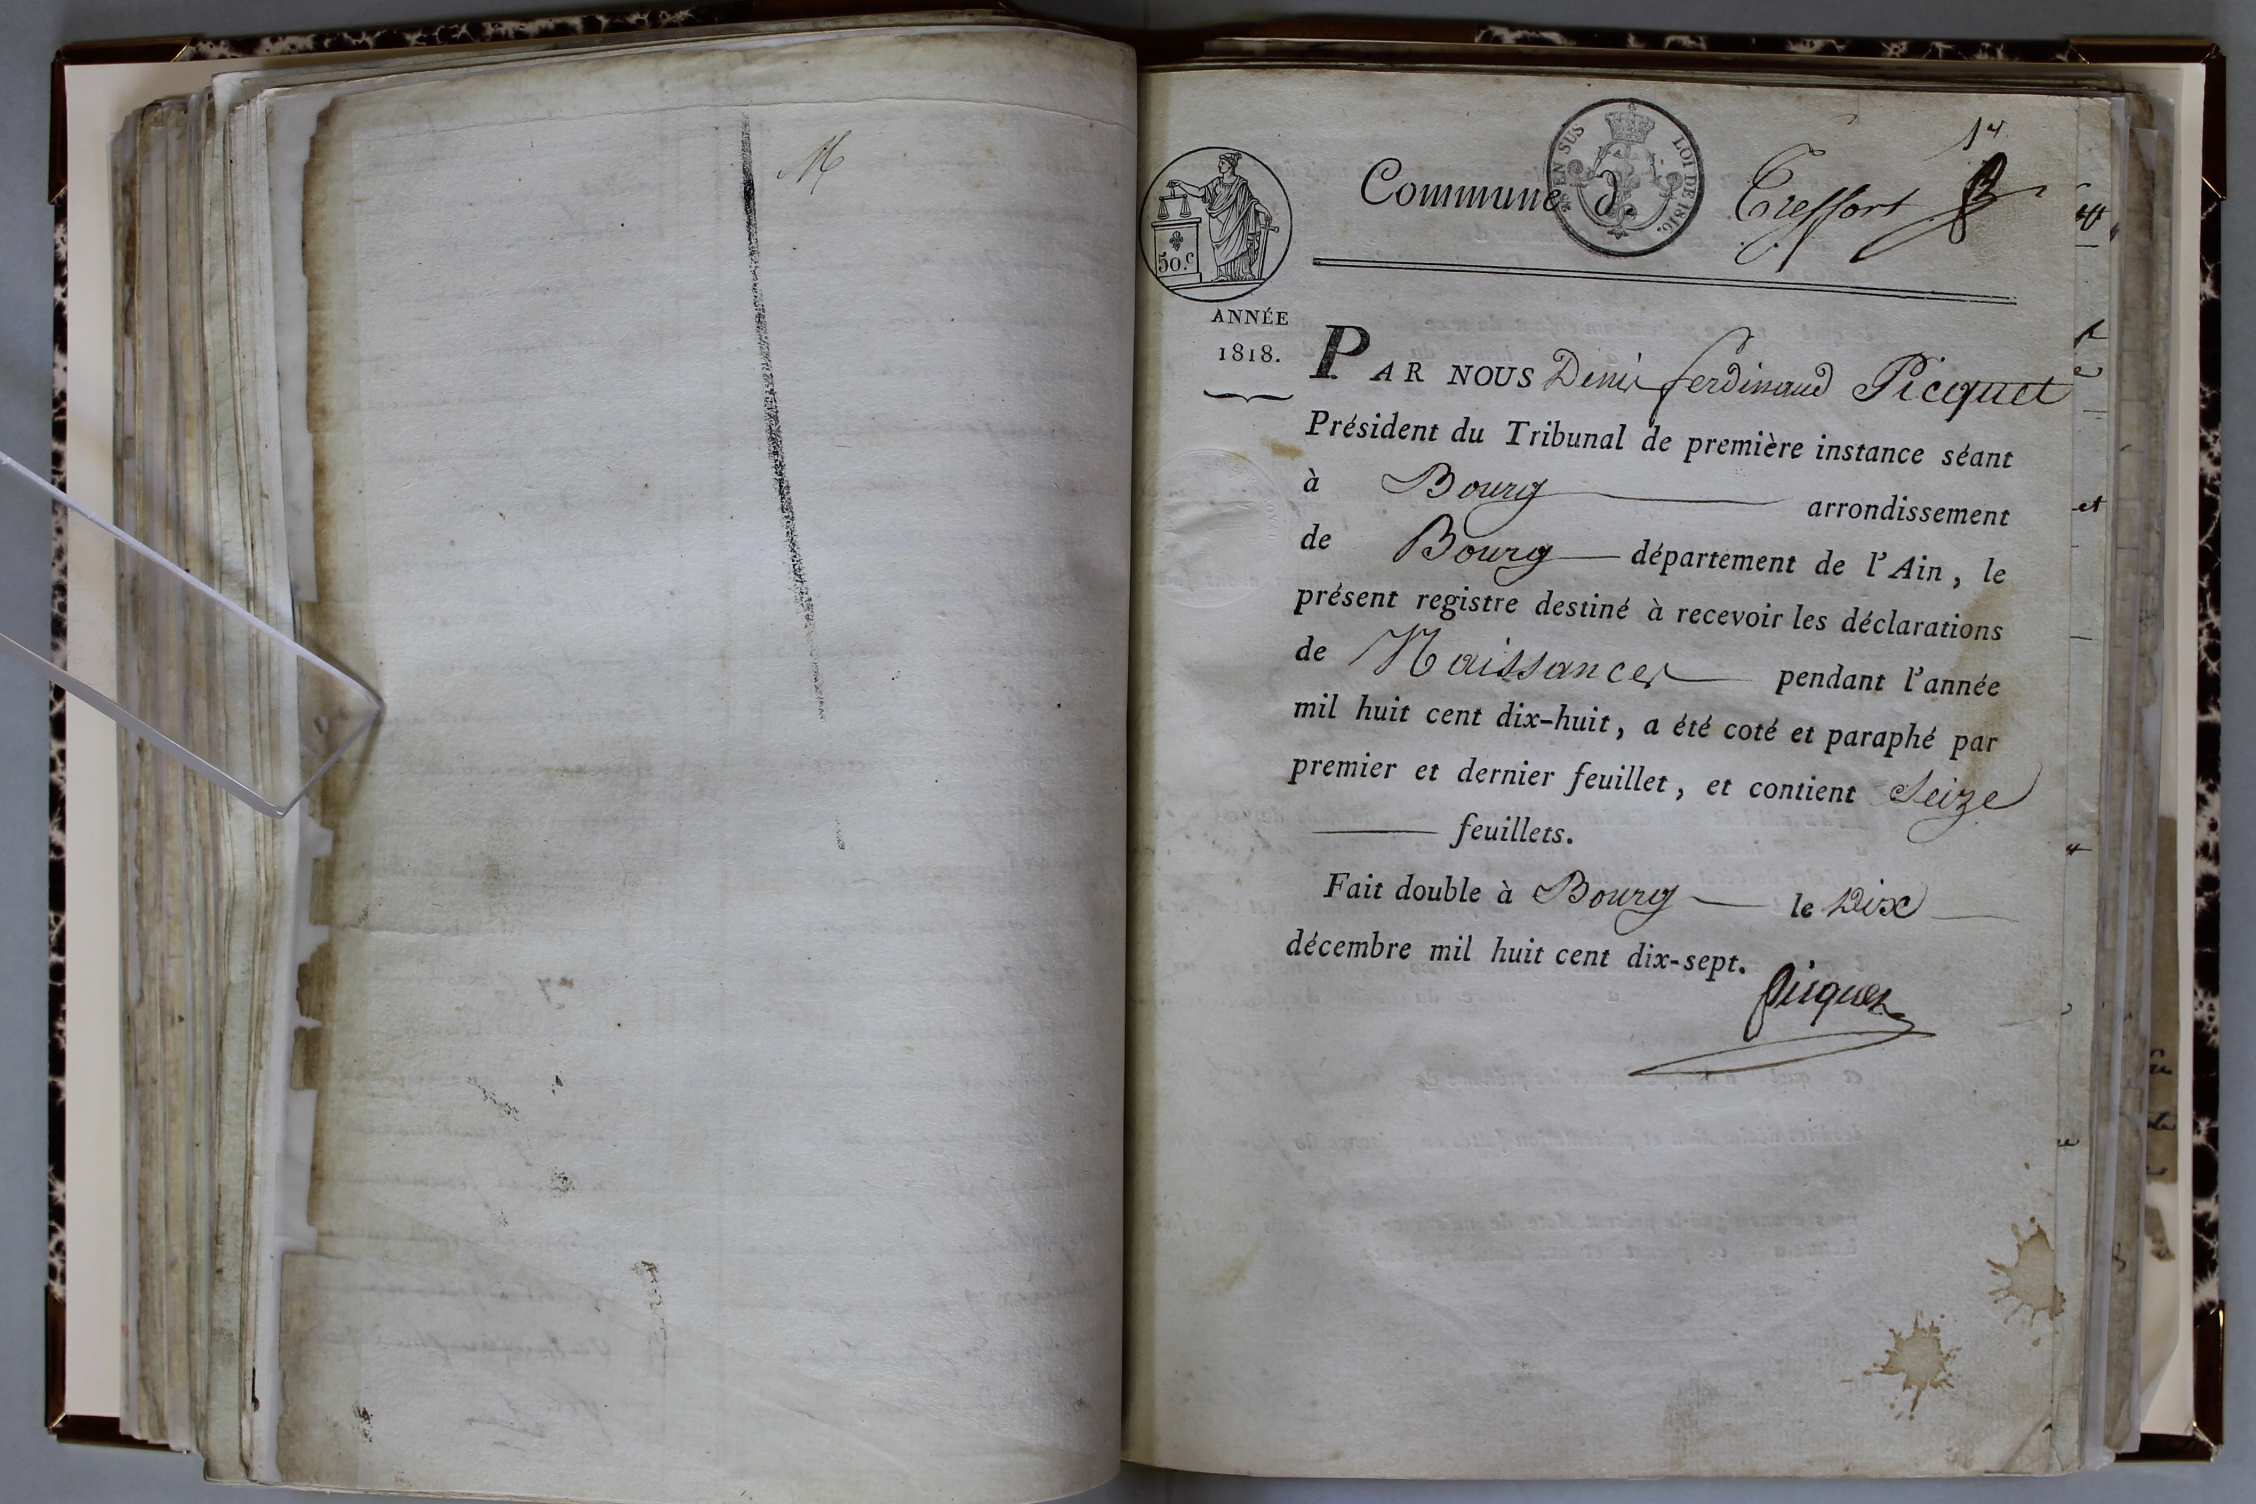 M
1er
EN SUS LOI DE 1816.
Commune de Treffort
50.c
ANNÉE
1818.
PAR NOUS Denis ferdinand Picquet
Président du Tribunal de première instance séant
à Bourg arrondissement
de Bourg département de l'Ain, le
présent registre destiné à recevoir les déclarations
de Naissances pendant l'année
mil huit cent dix-huit, a été coté et paraphé par
premier et dernier feuillet, et contient Seize
feuillets.
Fait double à Bourg le Dix
décembre mil huit cent dix-sept.
Picquet
et